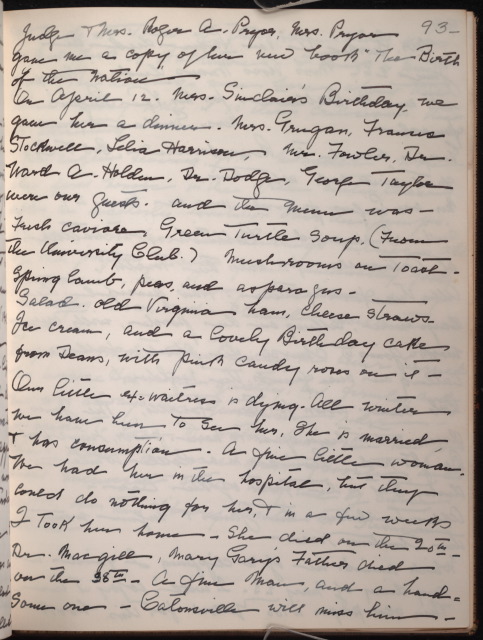 93-
Judge & Mrs. Roger A. Pryor, Mrs. Pryor
gave me a copy of her new book "The Birth
of the Nation
On April 12. Mrs. Sinclair's Birthday, we
gave her a dinner. Mrs. Grugan, Francis
Stockwell, Lelia Harrison, Mr. Fowler, Dr.
Ward A. Holden, Dr. Dodge, George Taylor
were our guests. and the menu was -
Fresh caviare, Green Turtle Soup, (From
the University Club.) Mushrooms on Toast -
Spring lamb, peas, and asparagus -
Salad. old Virginia ham, cheese straws -
Ice cream, and a lovely Birthday cake
from Deans, with pink candy roses on it -
Our little ex-waitress is dying. All winter
we have been to see her. She is married
& has consumption. A fine little woman.
We had her in the hospital, but they
could do nothing for her, & in a few weeks
I took her home - She died on the 20th -
Dr. Macgill, Mary Gary's Father died
on the 28th - A fine man, and a hand=
some one - Catonsville will miss him -